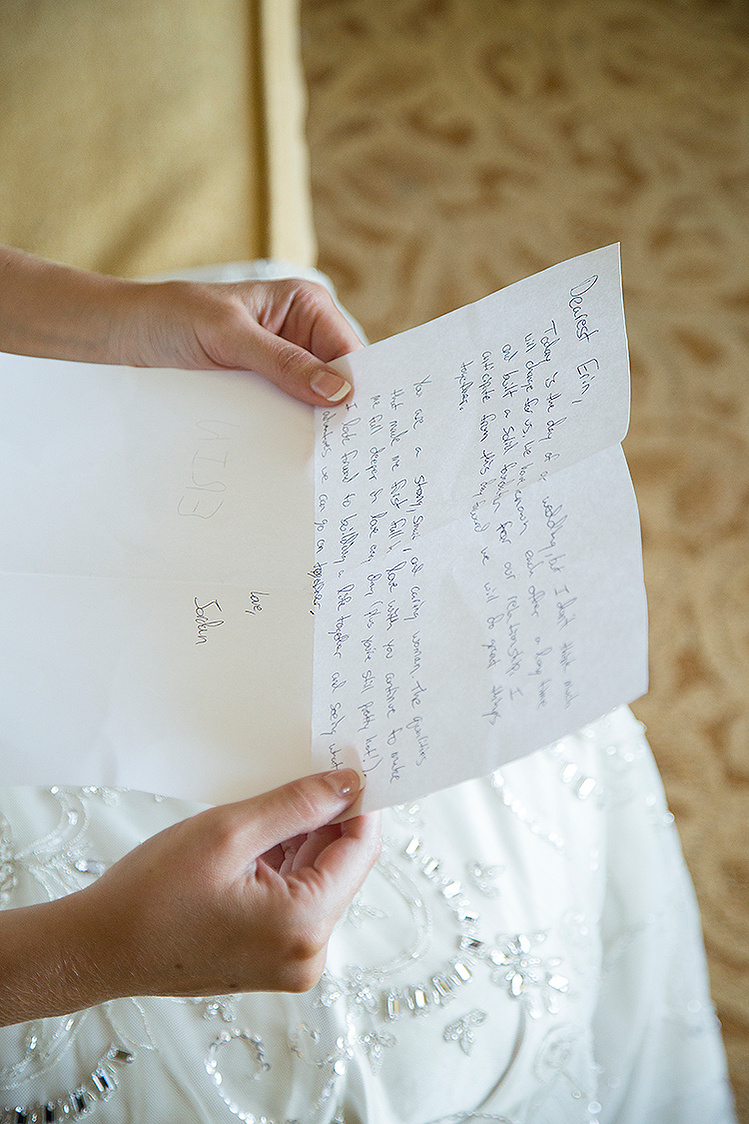 Dearest Erin,
Today is the day of our wedding, but I don't think much
will change for us. We have known each other a long time
and built a solid foundation for our relationship. I
anticipate from this day forward we will do great things
together.
You are a strong, smart, and caring woman. The qualities
that made me first fall in love with you continue to make
me fall deeper in love every day (plus you're still pretty hot!).
I look forward to building a life together and seeing what
adventures we can go on together.
Love,
Jordan
ERIN